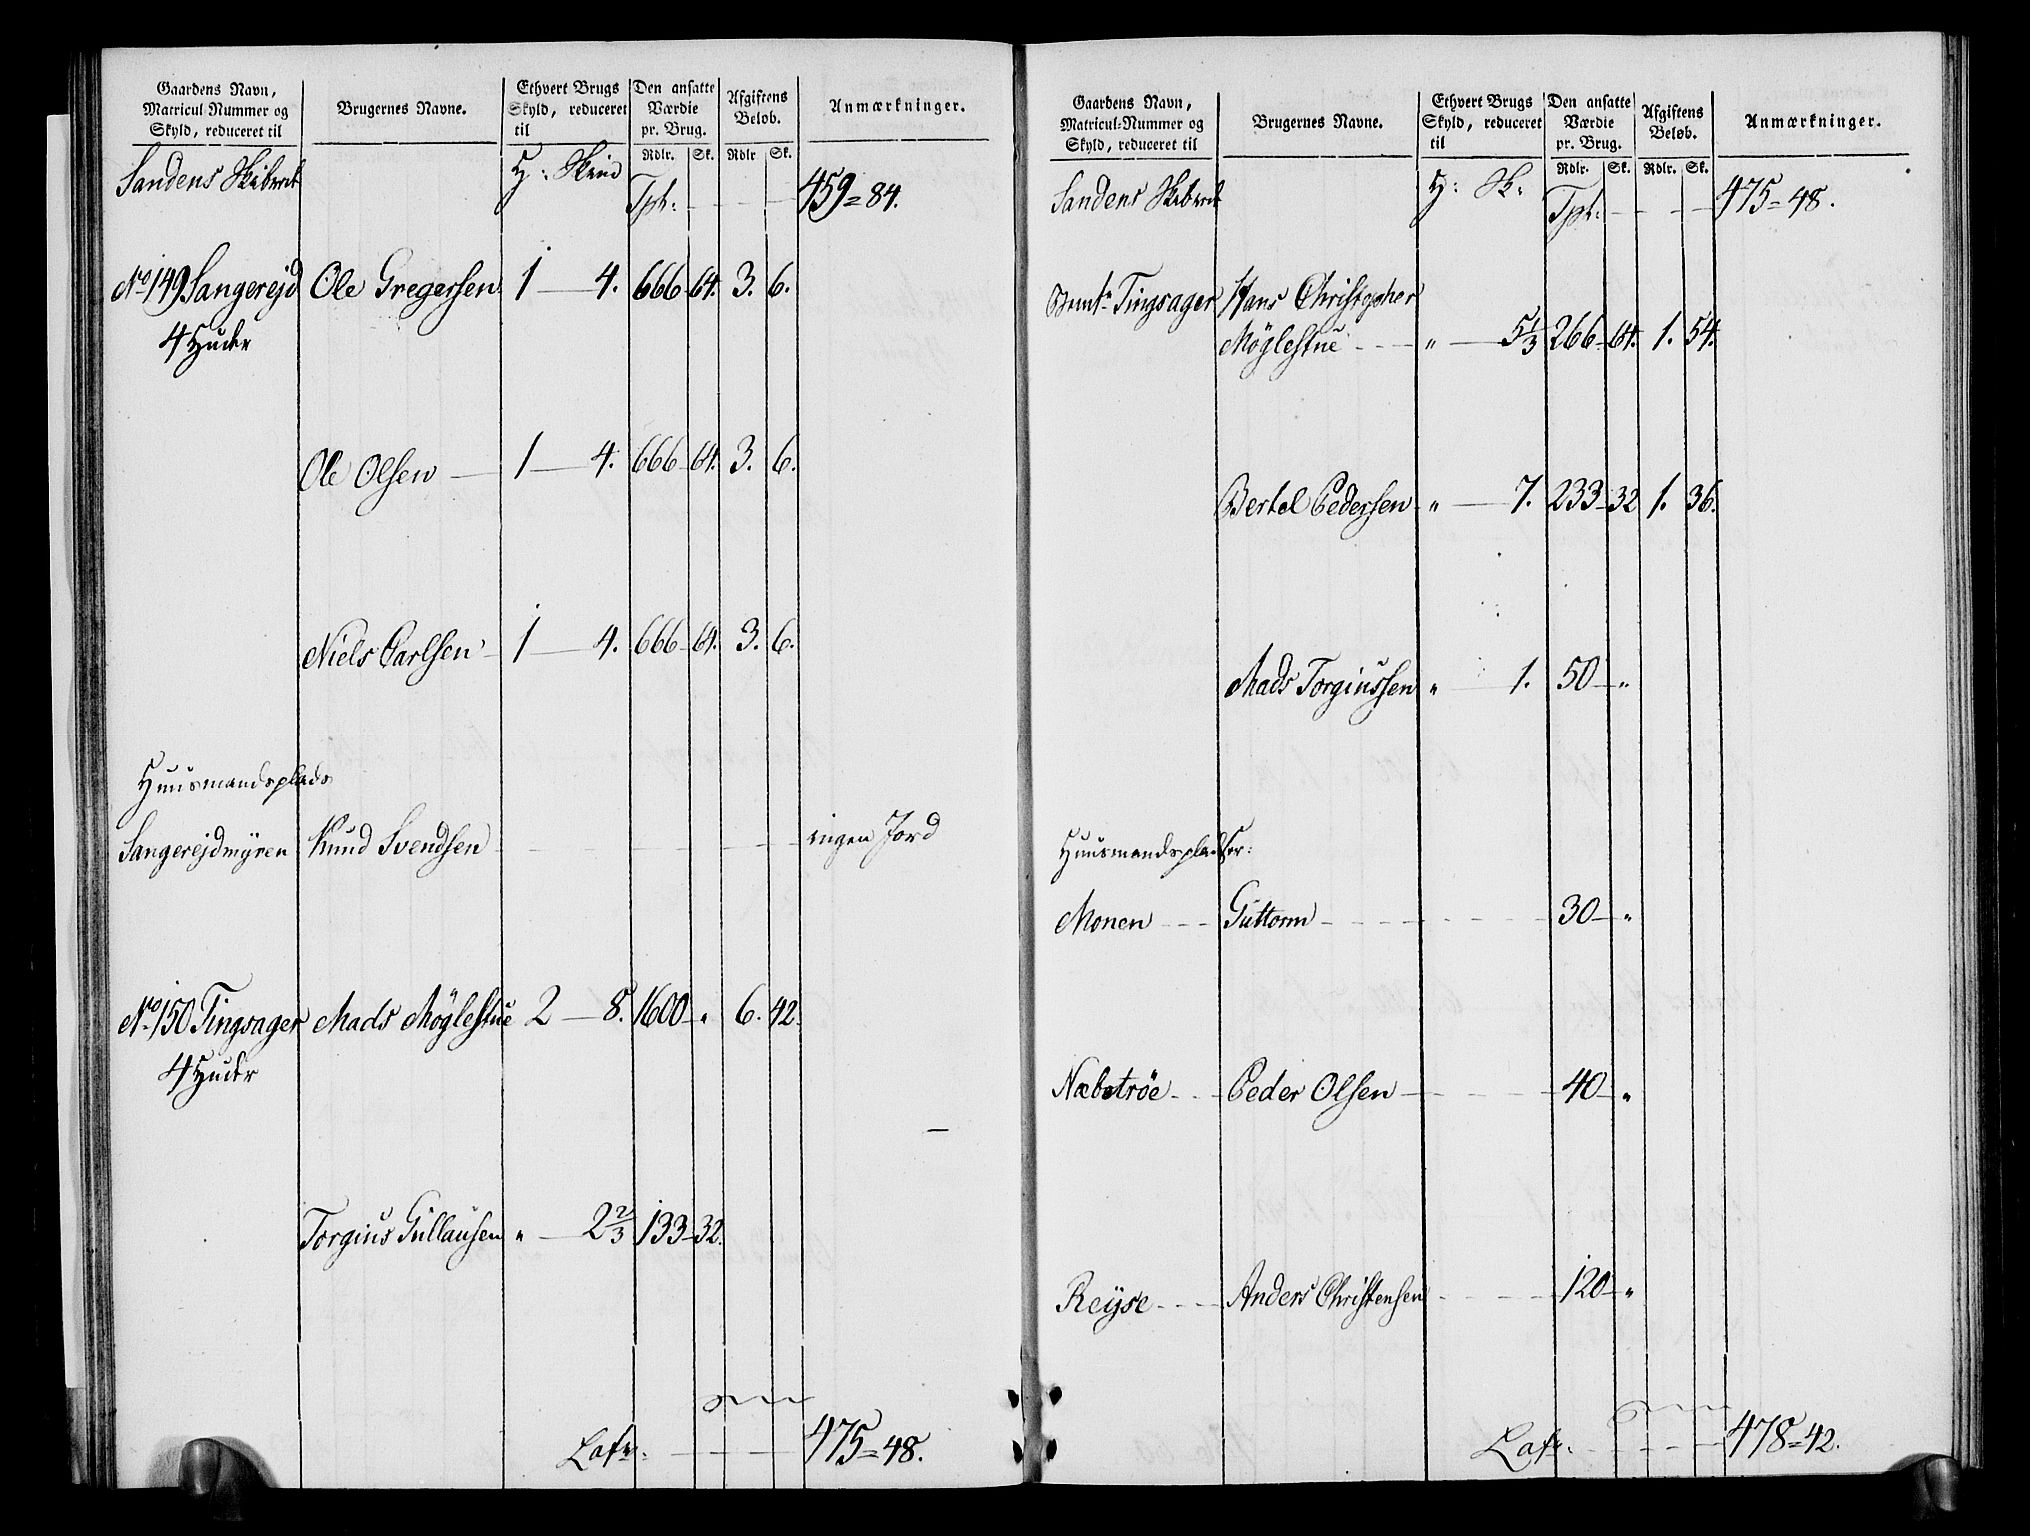 Gaardens Navn, Matricul-Nummer og Skyld, reduceret til | Brugernes Navne. | Ethvert Brugs Skyld, reduceret til | Den ansatte Værdie pr. Brug. Rdlr. Sk. | Afgiftens Beløb. Rdlr Sk. | Anmærkninger.
Sandens Skibred H: Skind
Tpt: 459=84.
No 149 Sangerejd Ole Gregersen 1 4. 666 64. 3. 6.
4 Huder
Ole Olsen 1 4. 666 64. 3. 6.
Niels Carlsen 1 4. 666 64. 3. 6.
Huusmandsplads
Sangerejdmyren Knud Svendsen ingen Jord
No 150 Tingsager Mads Möglestue 2 8. 1600 " 6. 42.
4 Huder
Torgius Gullausen " 2 2/3 133 32.
Lats: 475=48.
Gaardens Navn, Matricul-Nummer og Skyld, reduceret til | Brugernes Navne. | Ethvert Brugs Skyld, reduceret til | Den ansatte Værdie pr. Brug. Rdlr. Sk. | Afgiftens Beløb. Rdlr. Sk. | Anmærkninger.
Sandens Skibred H: Sk:
Tpt: 475=48.
Tingsager Hans Christopher
Möglestue " 5 1/3 266 64. 1. 54.
Bertel Pedersen " 7. 233 32 1. 36.
Mads Torgiussen " 1. 50 "
Huusmandspladser:
Monen Guttorm 30 "
Næbstrøe Peder Olsen 40 "
Reyse Anders Christensen 120 "
Lats: 478=42.